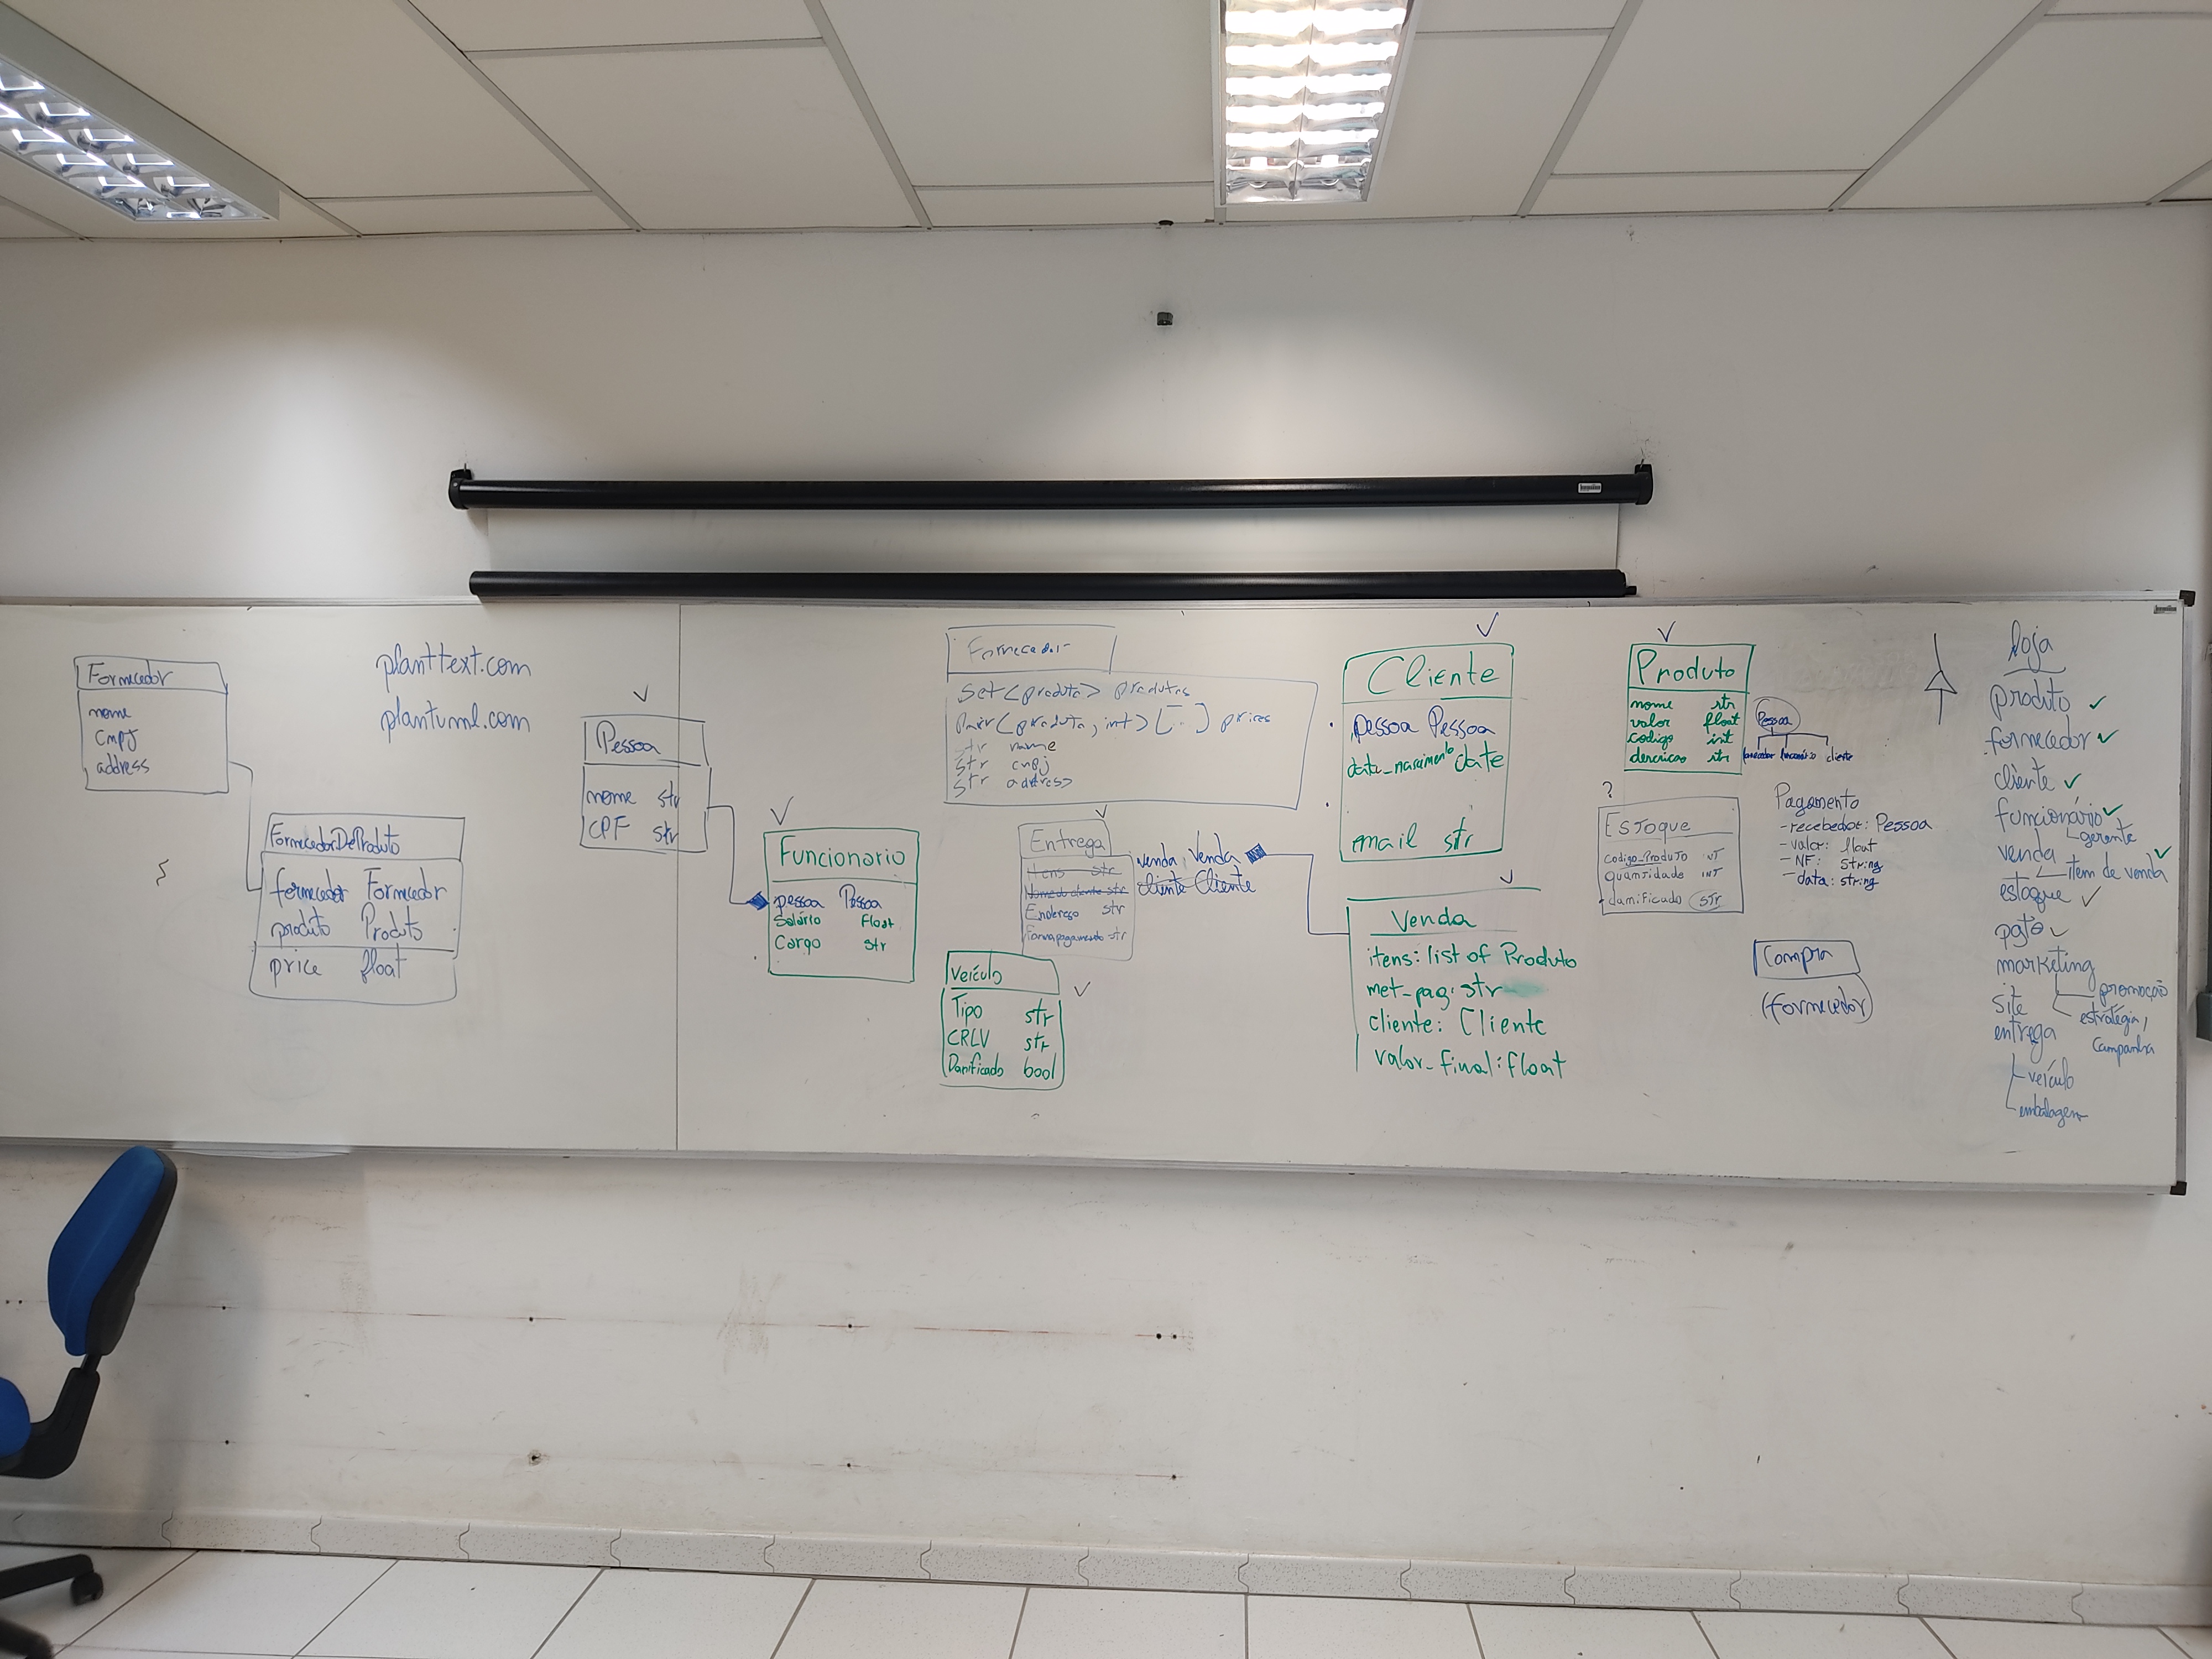 Fornecedor
nome
cnpj
address
planttext.com
plantuml.com
FornecedorDeProduto
fornecedor Fornecedor
produto Produto
price float
Pessoa
nome str
CPF str
Funcionario
pessoa Pessoa
Salário Float
Cargo str
Fornecedor
Set<produto> produtos
Pair<produto, int> [...] prices
str name
str cnpj
str address
Entrega
Itens str
Nome do cliente str
Endereço str
Forma pagamento str
venda: Venda
cliente Cliente
Veículo
Tipo str
CRLV str
Danificado bool
Cliente
pessoa Pessoa
data_nascimento date
email str
Venda
itens: list of Produto
met_pag: str
cliente: Cliente
valor_final: float
Produto
nome str
valor float
codigo int
descricao str
Pessoa
fornecedor funcionário cliente
?
Estoque
codigo_Produto INT
quantidade INT
damificado str
Pagamento
- recebedor: Pessoa
- valor: float
- NF: string
- data: string
Compra
(fornecedor)
loja
produto ✓
fornecedor ✓
cliente ✓
funcionário ✓
gerente
venda ✓
item de venda
estoque ✓
pgto ✓
marketing
promoção
estratégia/
campanha
site
entrega
veículo
embalagem